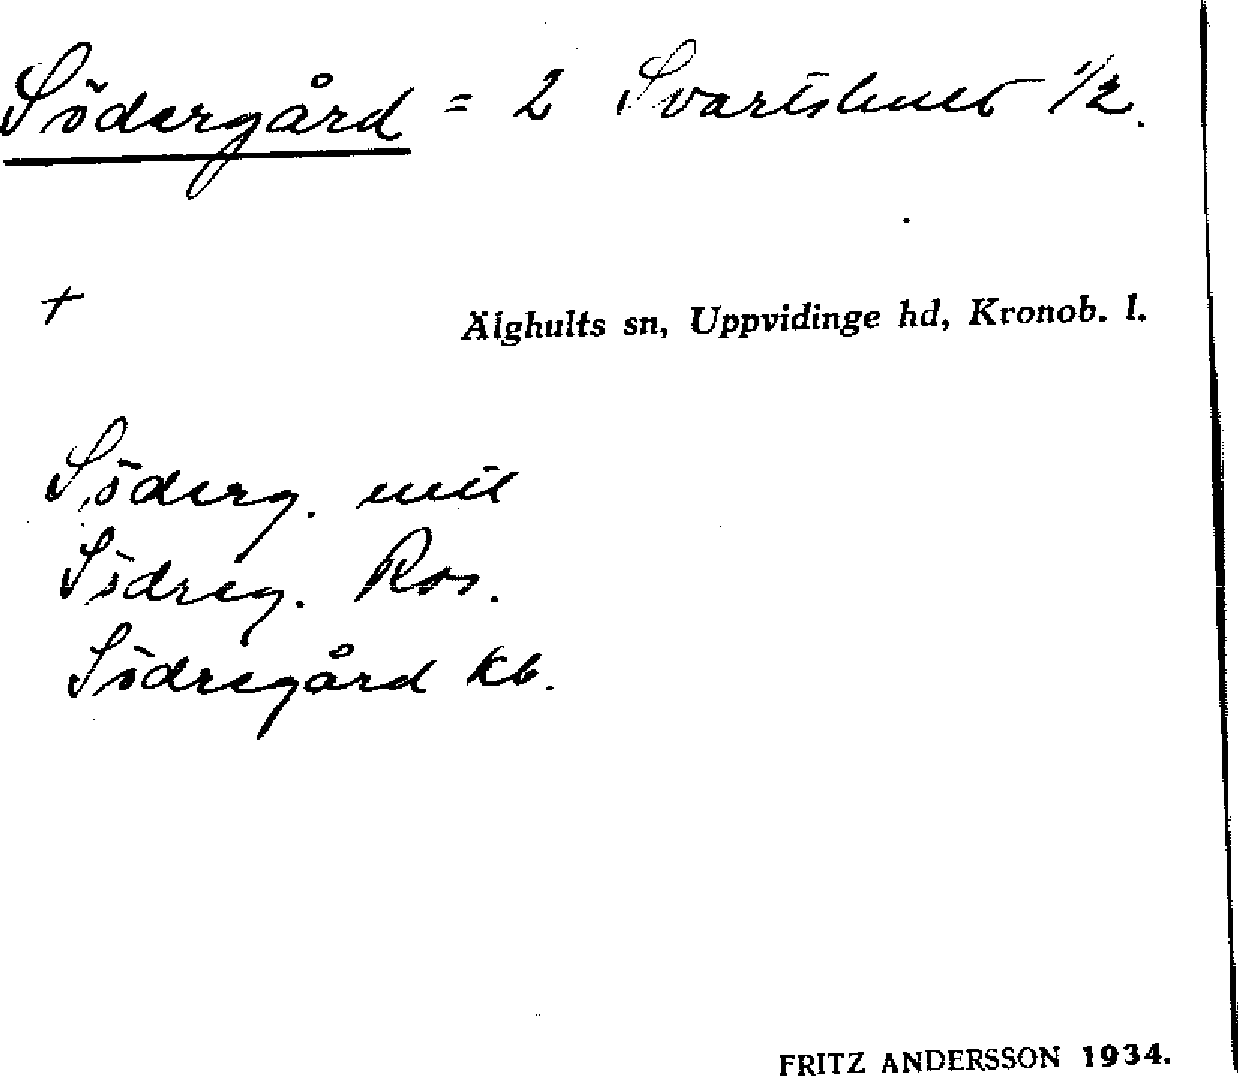 Södergård = 2 Svartshult 1/2.
+
Älghults sn, Uppvidinge hd, Kronob. l.
Söderg. mtl
Södreg. Ros.
Södregård kb.
FRITZ ANDERSSON 1934.